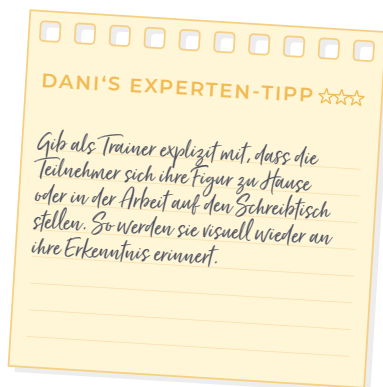 DANI'S EXPERTEN-TIPP
Gib als Trainer explizit mit, dass die
Teilnehmer sich ihre Figur zu Hause
oder in der Arbeit auf den Schreibtisch
stellen. So werden sie visuell wieder an
ihre Erkenntnis erinnert.